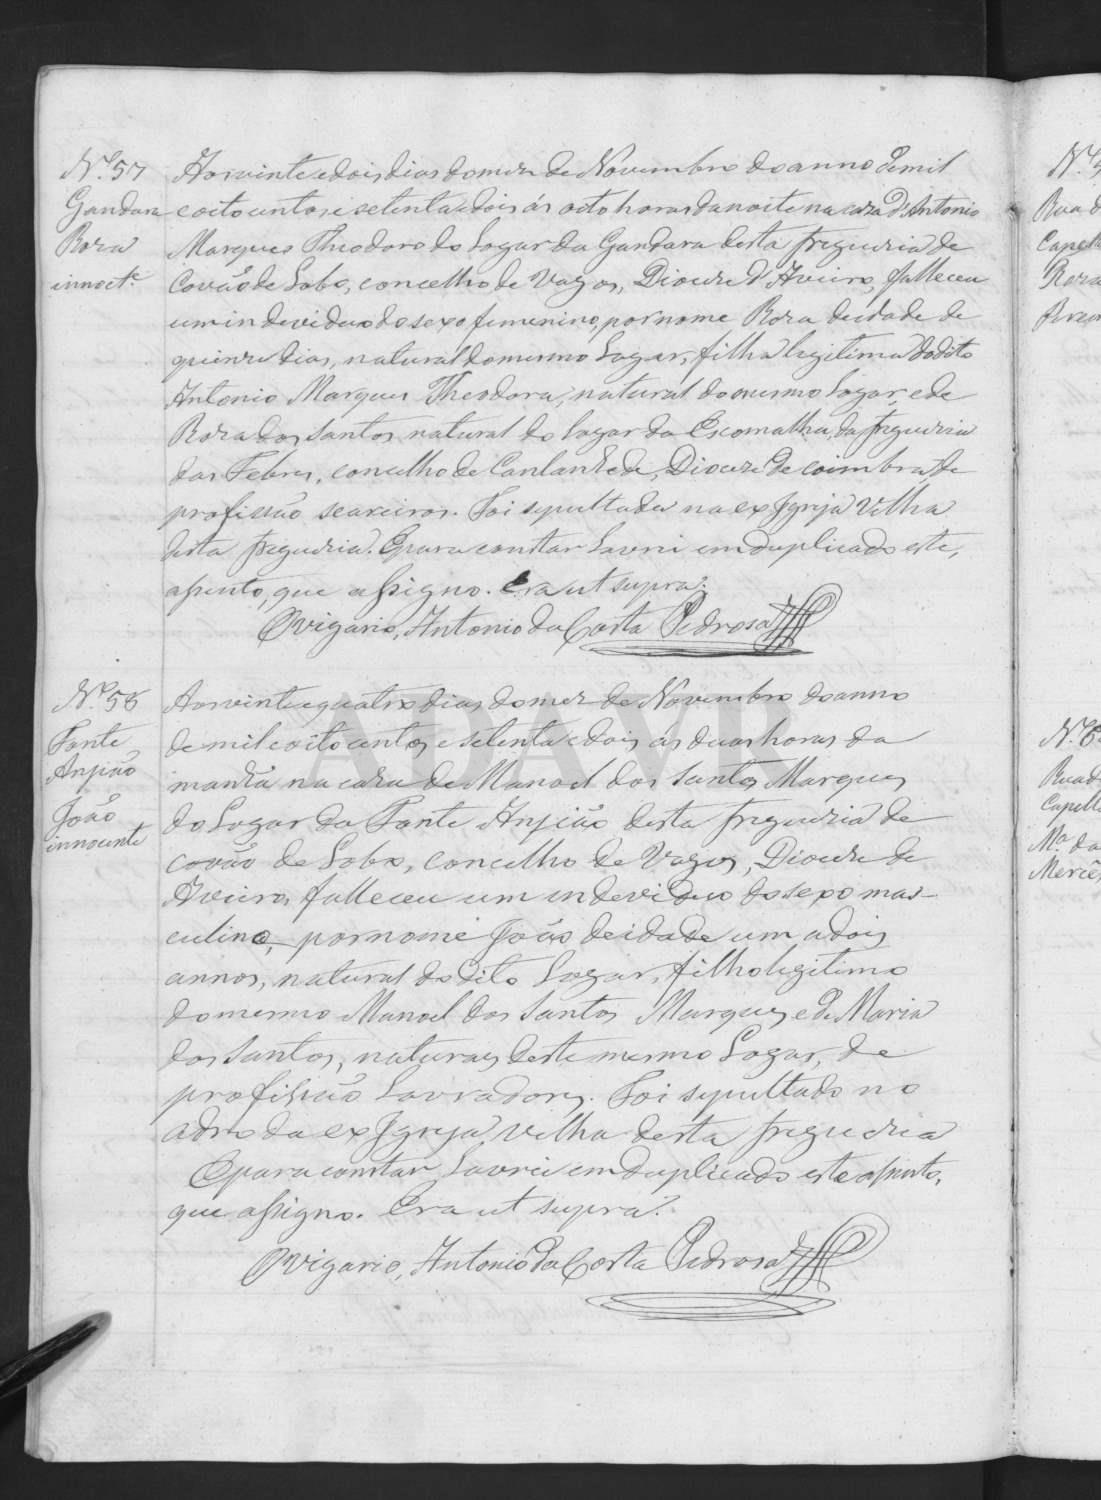 Nº 57
Gandara
Roza
innoctᵉ
Aos vinte e dois dias do mez de Novembro do anno de mil
e oito centos e setenta e dois ás oito horas da noite na caza d'Antonio
Marques Theodoro do Logar da Gandara desta freguezia de
Covão de Lobo, concelho de Vagos, Dioceze d'Aveiro, falleceu
um individuo do sexo femenino, por nome Roza de idade de
quinze dias, natural do mesmo Logar, filha legitima do dito
Antonio Marques Theodoro, natural do mesmo Logar, e de
Roza dos Santos natural do Logar da Escomalha, da freguezia
das Febres, concelho de Cantanhede, Dioceze de Coimbra, de
profissão seareiros. Foi sepultada na ex Igreja Velha
desta freguezia. E para constar Lavrei em duplicado este,
assento, que assigno. Era ut supra.
O Vigario, Antonio da Costa Pedrosa
Nº 58
Fonte
Anjião
João
innocente
Aos vinte e quatro dias do mez de Novembro do anno
de mil e oito centos e setenta e dois ás duas horas da
manhã na caza de Manoel dos Santos Marques
do Logar da Fonte Anjião desta freguezia de
Covão de Lobo, concelho de Vagos, Dioceze de
Aveiro, falleceu um individuo do sexo mas-
culino, por nome João de idade um a dois
annos, natural do dito Logar, filho legitimo
do mesmo Manoel dos Santos Marques e de Maria
dos Santos, naturaes deste mesmo Logar, de
profissão Lavradores. Foi sepultado no
adro da ex Igreja velha desta freguezia
E para constar Lavrei em duplicado este assento,
que assigno. Era ut supra.
O Vigario, Antonio da Costa Pedrosa
ADAVR
Capell
Roza
Nº 6
Rua d
Capell
Mª da
Mercês